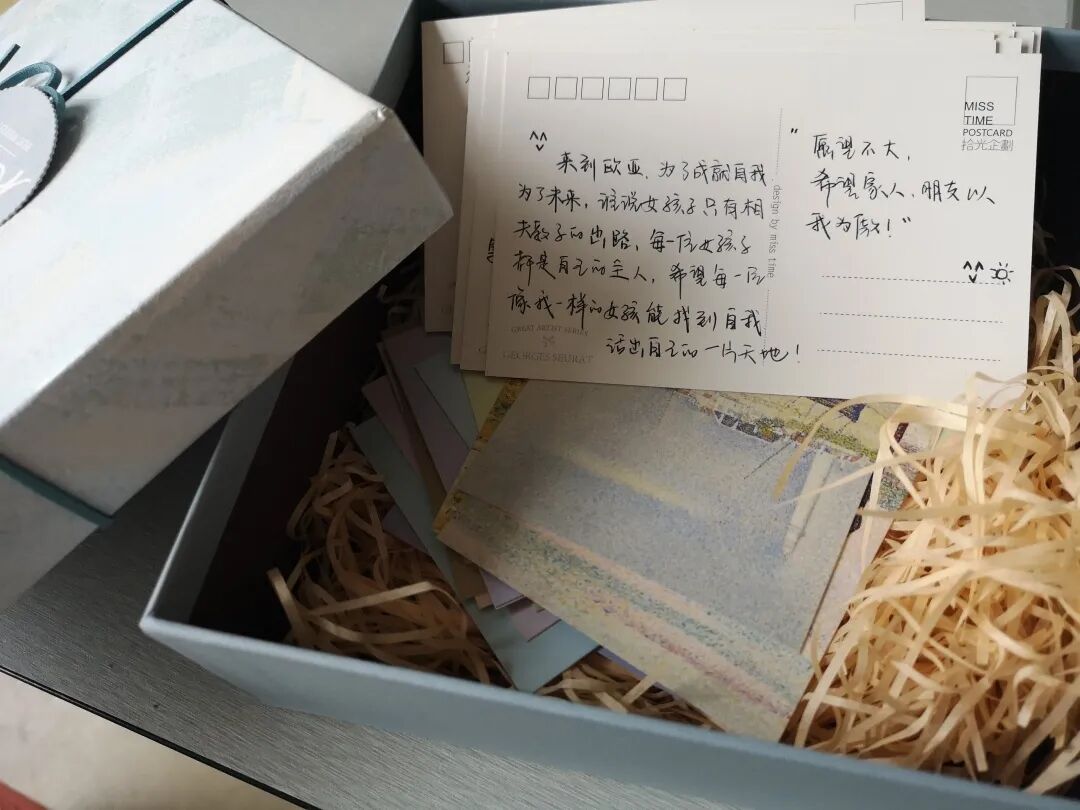 ^^
来到欧亚，为了成就自我
为了未来，谁说女孩子只有相
夫教子的出路，每一位女孩子
都是自己的主人，希望每一位
像我一样的女孩能找到自我
活出自己的一片天地！
GREAT ARTIST SERIES
GEORGES SEURAT
design by miss time
MISS
TIME
POSTCARD
拾光企劃
"愿望不大，
希望家人、朋友以
我为傲！"
^^